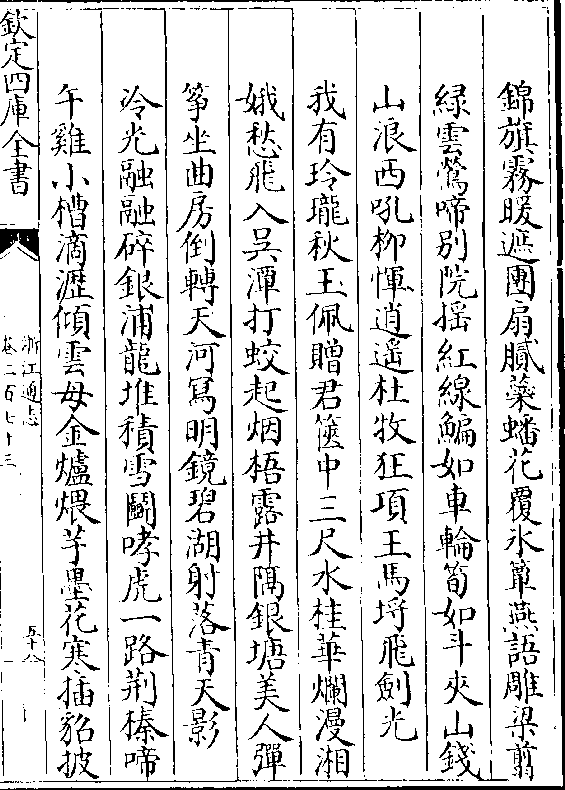 錦旗霧暖遮團扇膩藥蟠花覆氷簟燕語雕梁翦
緑雲鶯啼别院揺紅線鯿如車輪筍如斗夾山錢
山浪西吼柳惲逍遥杜牧狂項王馬埒飛劍光
我有玲瓏秋玉佩贈君篋中三尺水桂華爛漫湘
娥愁飛入吳潭打蛟起烟梧露井隔銀塘美人彈
筝坐曲房倒轉天河寫明鏡碧湖射落青天影
冷光融融碎銀浦龍堆積雪鬭哮虎一路荆榛啼
午雞小槽滴瀝傾雲母金爐煨芋墨花寒插貂披
欽定四庫全書
浙江通志
卷二百七十三
五十八